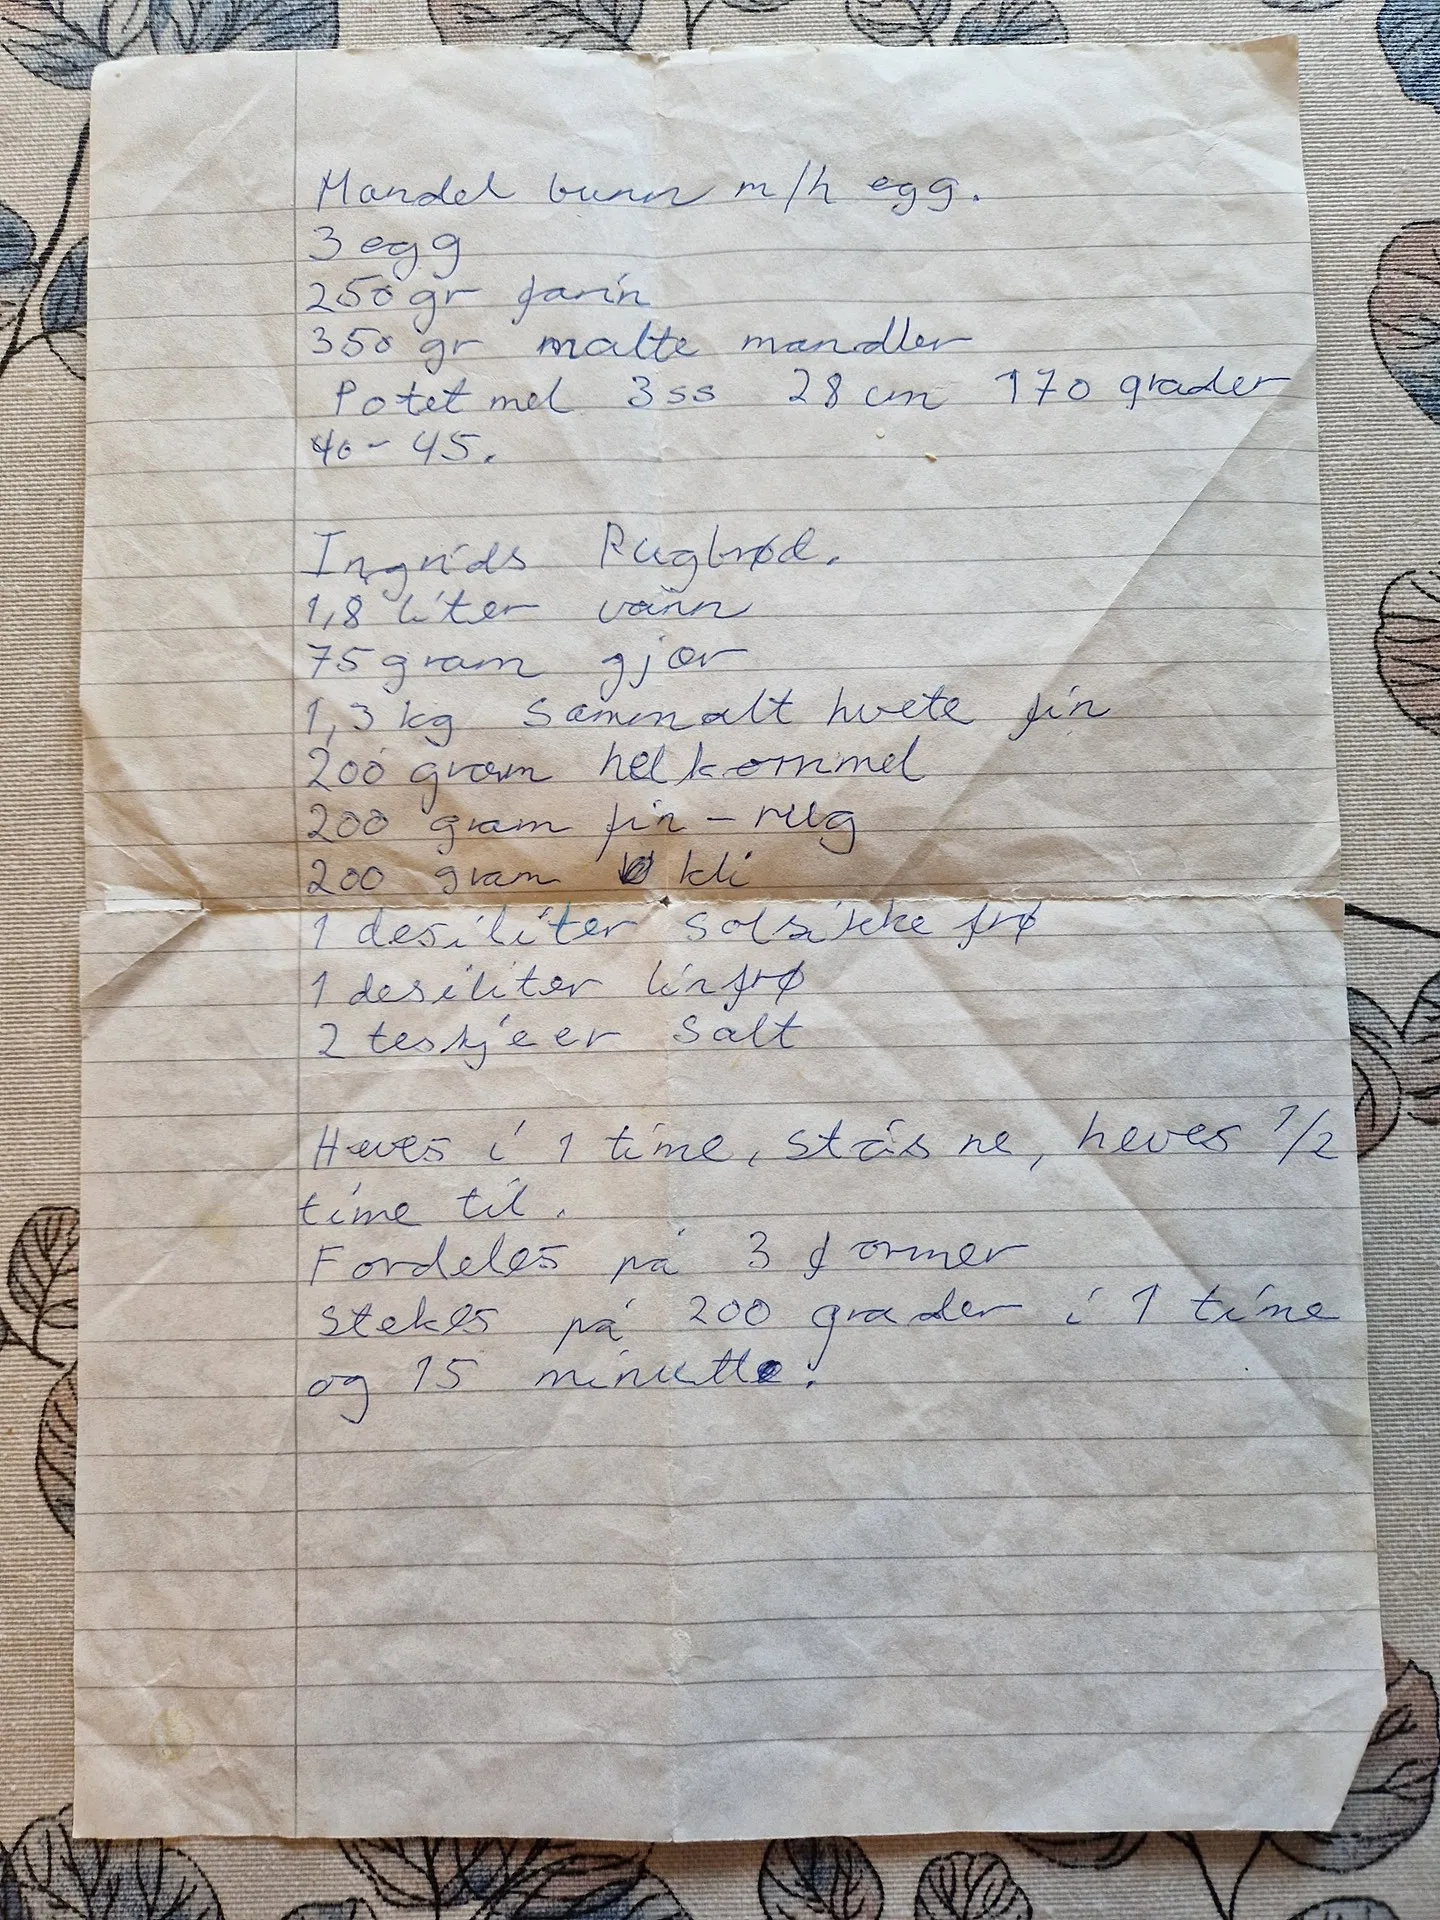 Mandel bunn m/h egg.
3 egg
250 gr farin
350 gr malte mandler
Potet mel 3 ss 28 cm 170 grader
40-45.
Ingrids Rugbrød.
1,8 liter vann
75 gram gjær
1,3 kg Sammalt hvete fin
200 gram hel kornmel
200 gram fin-rug
200 gram kli
1 desiliter solsikke frø
1 desiliter linfrø
2 teskjeer Salt
Heves i 1 time, stås ne, heves 1/2
time til.
Fordeles på 3 former
stekes på 200 grader i 1 time
og 15 minutte.